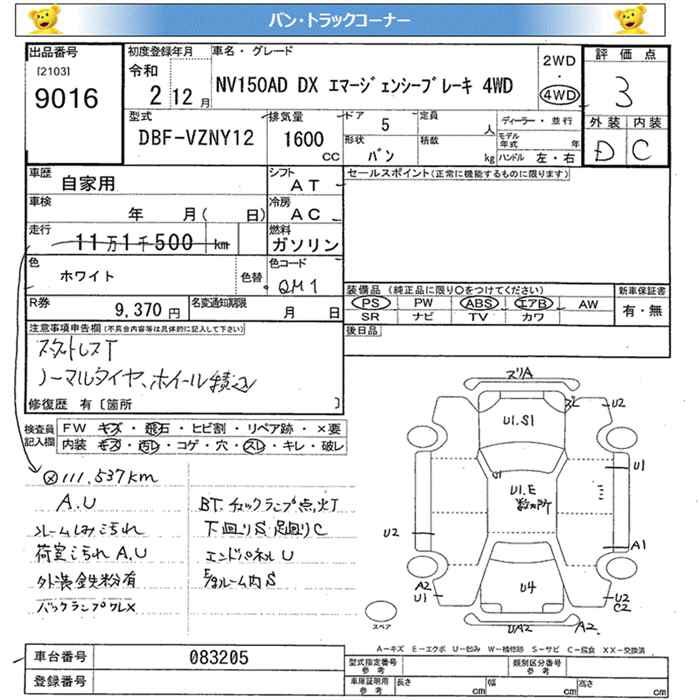 バン・トラックコーナー
出品番号
[2103]
9016
初度登録年月
令和
2 12月
車名・グレード
NV150AD DX エマージェンシーブレーキ 4WD
2WD
・
4WD
評価点
3
外装 内装
D C
型式
DBF-VZNY12
排気量
1600
CC
ドア 5
形状 バン
定員 人
積数 kg
ディーラー・並行
モデル年式 年
ハンドル 左・右
車歴 自家用
シフト AT
セールスポイント(正常に機能するものに限ります)
車検 年 月( 日)
冷房 AC
走行 11万1千500 km
燃料 ガソリン
色 ホワイト 色替
色コード QM1
装備品 (純正品に限り○をつけてください)
PS PW ABS エアB AW
SR ナビ TV カワ
新車保証書
有・無
R券 9,370円
名変通知期限 月 日
後日品
注意事項申告欄(不具合内容等は具体的に記入して下さい)
スタットレスT
ノーマルタイヤ、ホイール積込
修復歴 有〔箇所 〕
検査員記入欄
FW キズ・飛石・ヒビ割・リペア跡・×要
内装・キズ・汚レ・コゲ・穴・スレ・キレ・破レ
111,537km
A.U
ルームしみ汚れ
荷室汚れ A.U
外装鉄粉有
バックランプワレX
BT.チェックランプ点灯
下廻りS 足廻りC
エンドパネルU
E/gルーム内S
ズリA
U1.S1
ズレ
U2
U1
U1
U1.E
数カ所
U2
A1
A2
U1
U4
U2
C2
UA2
A2
スペア
A－キズ E－エクボ U－凹み W－補修跡 S－サビ C－腐食 XX－交換済
車台番号 083205
登録番号
型式指定番号 参考
類別区分番号 参考
車庫証明用 参考
長さ cm
幅 cm
高さ cm